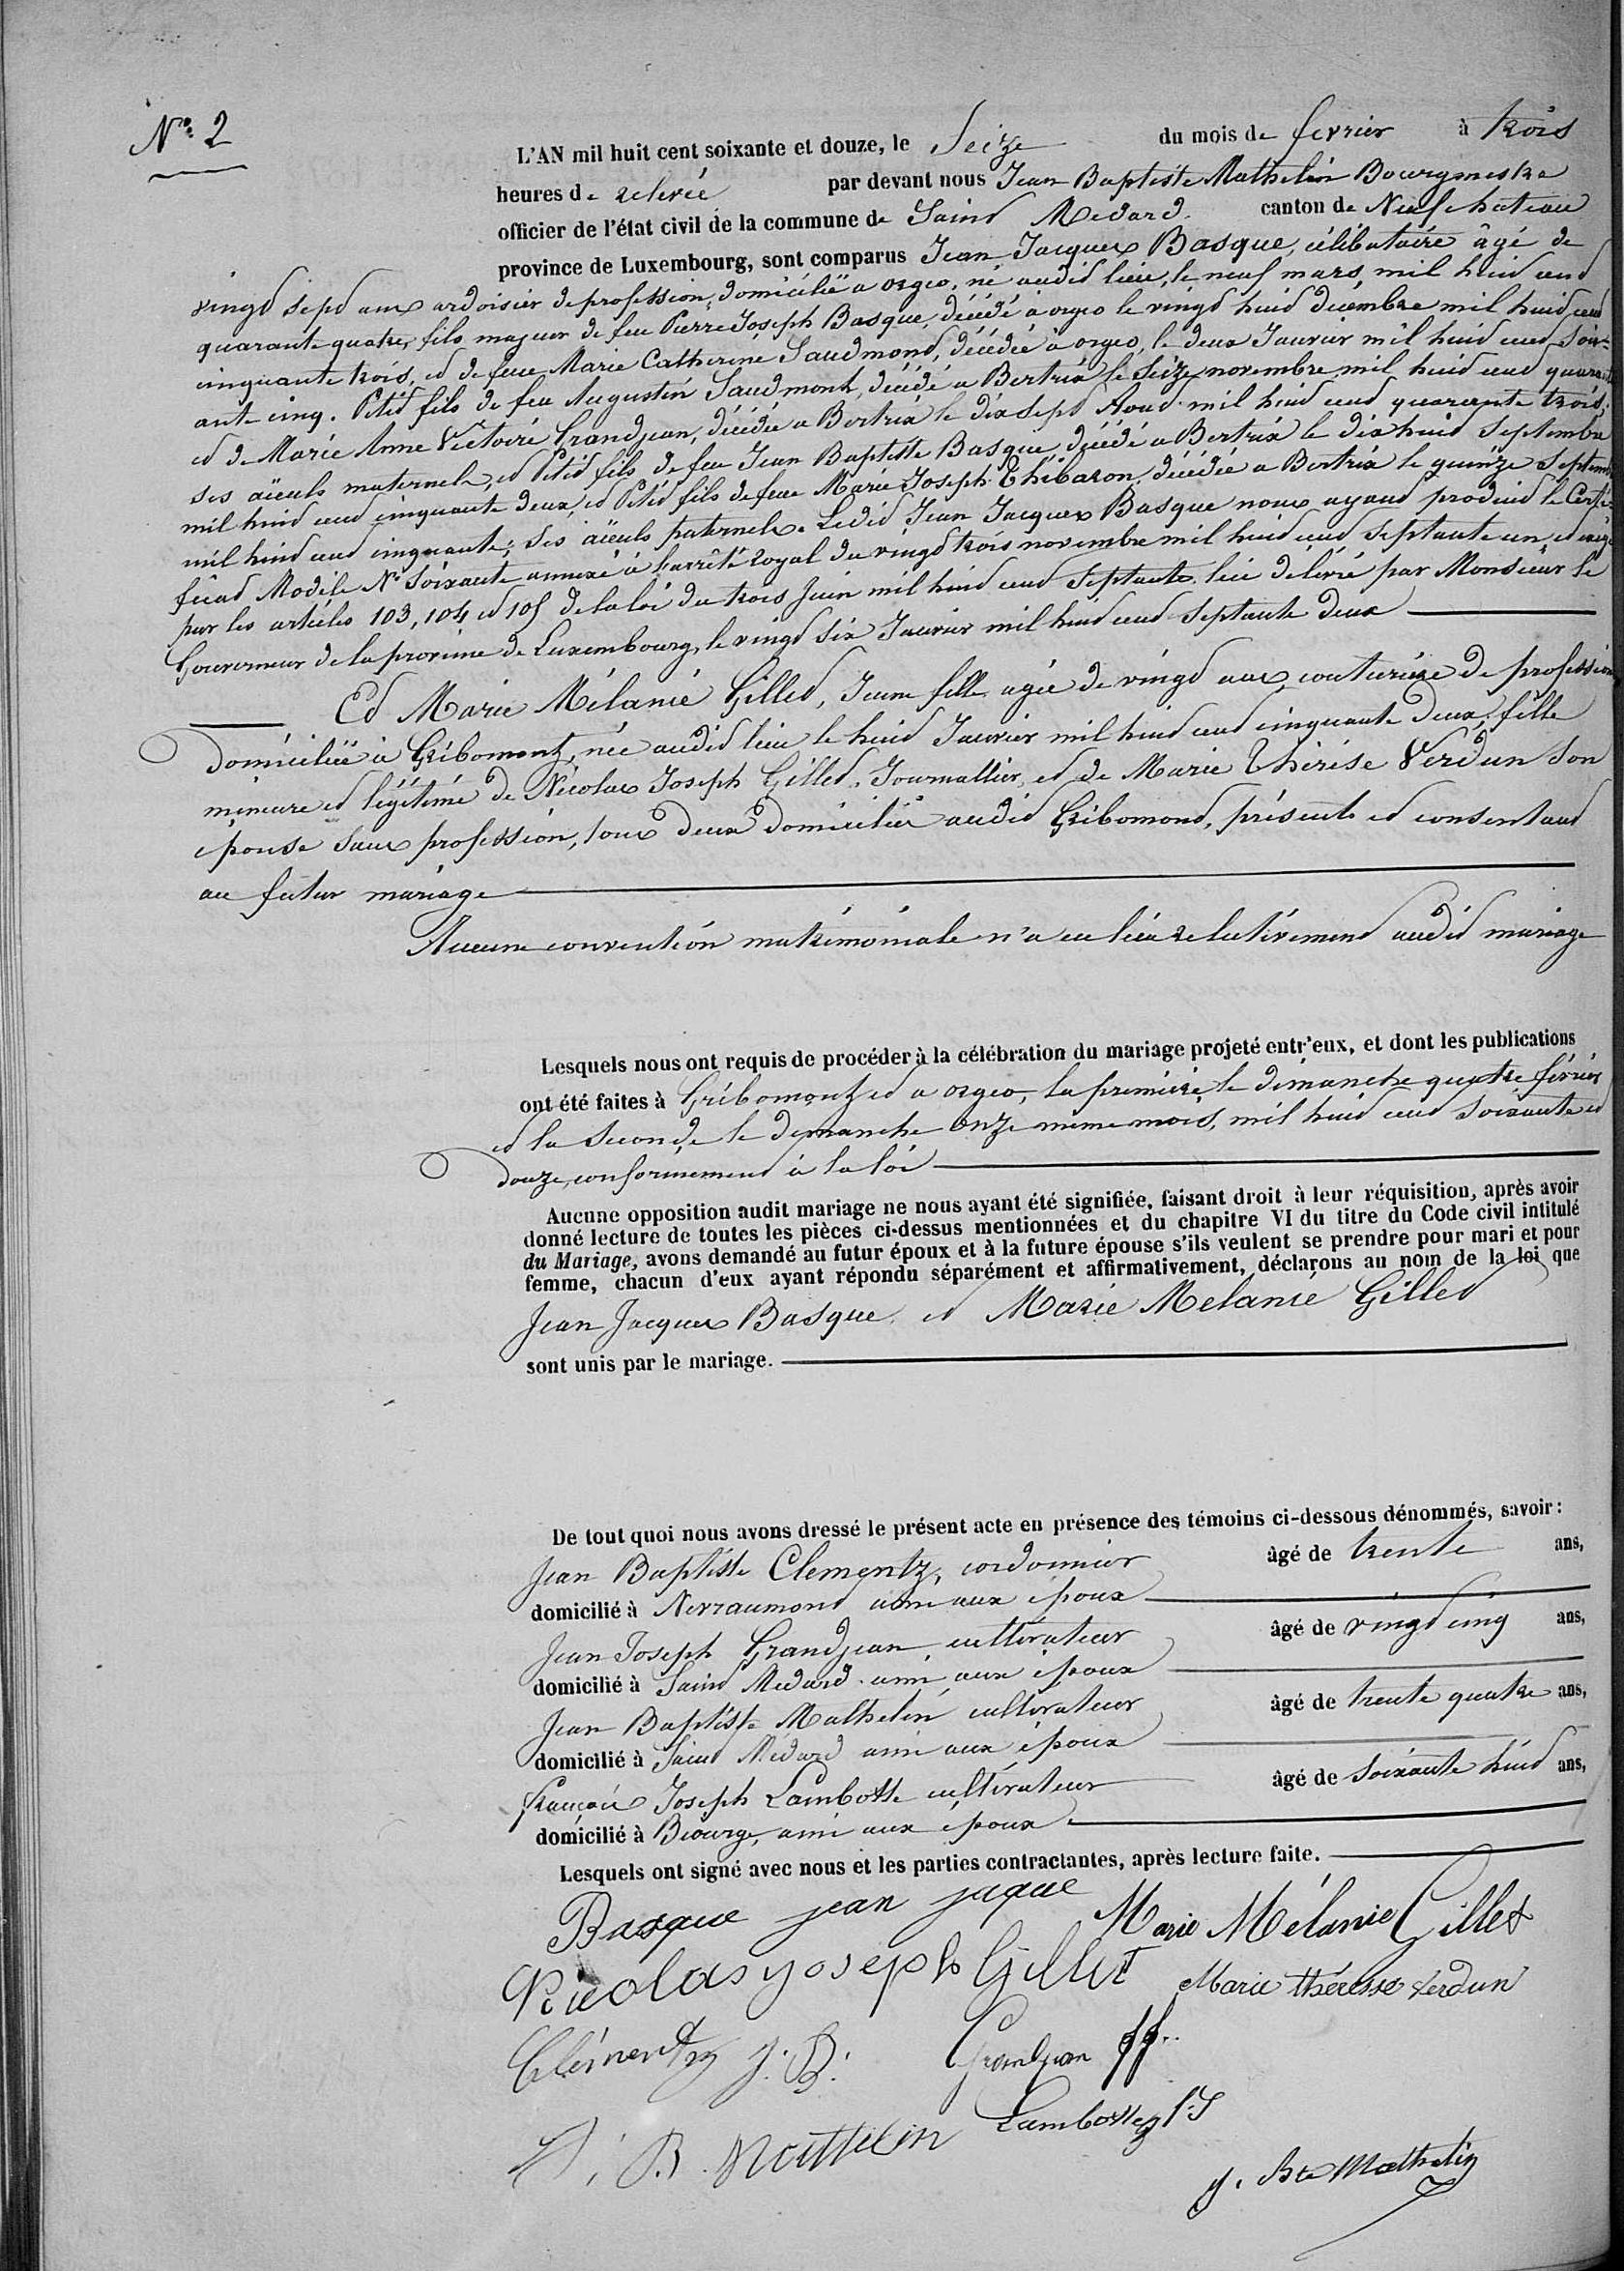 N° 2
L'AN mil huit cent soixante et douze, le Seize du mois de fevrier à trois
heures de relevée par devant nous Jean Baptiste Mathelin Bourgmestre
officier de l'état civil de la commune de Saint Medard. canton de Neufchateau
province de Luxembourg, sont comparus Jean Jacques Basque, célibataire âgé de
vingt sept ans ardoisier de profession, domicilié a orgeo, né audit lieu, le neuf mars, mil huit cent
quarante quatre, fils majeur de feu Pierre Joseph Basque, décédé à orgeo le vingt huit décembre mil huit cent
cinquante trois, et de feue Marie Catherine Saudmont, décédée à orgeo, le deux Janvier mil huit cent soix-
ante cinq. Petit fils de feu Augustin Saudmont, décédé a Bertrix le Seize novembre mil huit cent quarante
et de Marie Anne Victoire Grandjean, décédée a Bertrix le dix sept Aout mil huit cent quarante trois;
ses aïeuls maternels, et Petit fils de feu Jean Baptiste Basque décédé a Bertrix le dix huit Septembre
mil huit cent cinquante deux, et Petit fils de feue Marie Joseph Thibaron, décédée a Bertrix le quinze Septembre
mil huit cent cinquante; ses aïeuls paternels. Ledit Jean Jacques Basque nous ayant produit le Certi-
ficat Modèle N° Soixante annexé à l'arrêté royal du vingt trois novembre mil huit cent septante un, et exigé
par les articles 103, 104 et 105 de la loi du trois Juin mil huit cent Septante, lui délivré par Monsieur le
Gouverneur de la province de Luxembourg, le vingt six Janvier mil huit cent septante deux
Et Marie Mélanie Gillet, Jeune fille agée de vingt ans couturière de profession
Domiciliée à Gribomont, née audit lieu le huit Janvier mil huit cent cinquante Deux, fille
mineure et légitime de Nicolas Joseph Gillet, Journallier, et de Marie Thérèse Verdun Son
épouse sans profession, tous deux domiciliés audit Gribomont, présents et consentant
au futur mariage
Aucune convention matrimoniale n'a eu lieu relativement audit mariage
Lesquels nous ont requis de procéder à la célébration du mariage projeté entr'eux, et dont les publications
ont été faites à Gribomont et a orgeo, la première le dimanche quatre février
et la seconde le dimanche onze même mois, mil huit cent soixante et
douze, conformement à la loi
Aucune opposition audit mariage ne nous ayant été signifiée, faisant droit à leur réquisition, après avoir
donné lecture de toutes les pièces ci-dessus mentionnées et du chapitre VI du titre du Code civil intitulé
du Mariage, avons demandé au futur époux et à la future épouse s'ils veulent se prendre pour mari et pour
femme, chacun d'eux ayant répondu séparément et affirmativement, déclarons au nom de la loi que
Jean Jacques Basque et Marie Melanie Gillet
sont unis par le mariage.
De tout quoi nous avons dressé le présent acte en présence des témoins ci-dessous dénommés, savoir :
Jean Baptiste Clementz, cordonnier âgé de trente ans,
domicilié à Nevraumont ami aux époux
Jean Joseph Grandjean cultivateur âgé de vingt cinq ans,
domicilié à Saint Medard ami aux époux
Jean Baptiste Mathelin cultivateur âgé de trente quatre ans,
domicilié à Saint Medard ami aux époux
François Joseph Lambotte cultivateur âgé de soixante huit ans,
domicilié à Biourge, ami aux époux
Lesquels ont signé avec nous et les parties contractantes, après lecture faite.
Basque jean jaque Marie Mélanie Gillet
Nicolas yoseph Gillet Marie thérèsse verdun
Clémentz J. B. Grandjean JJ..
J. B. Mathelin Lambotte f. J
J. Bte Mathelin